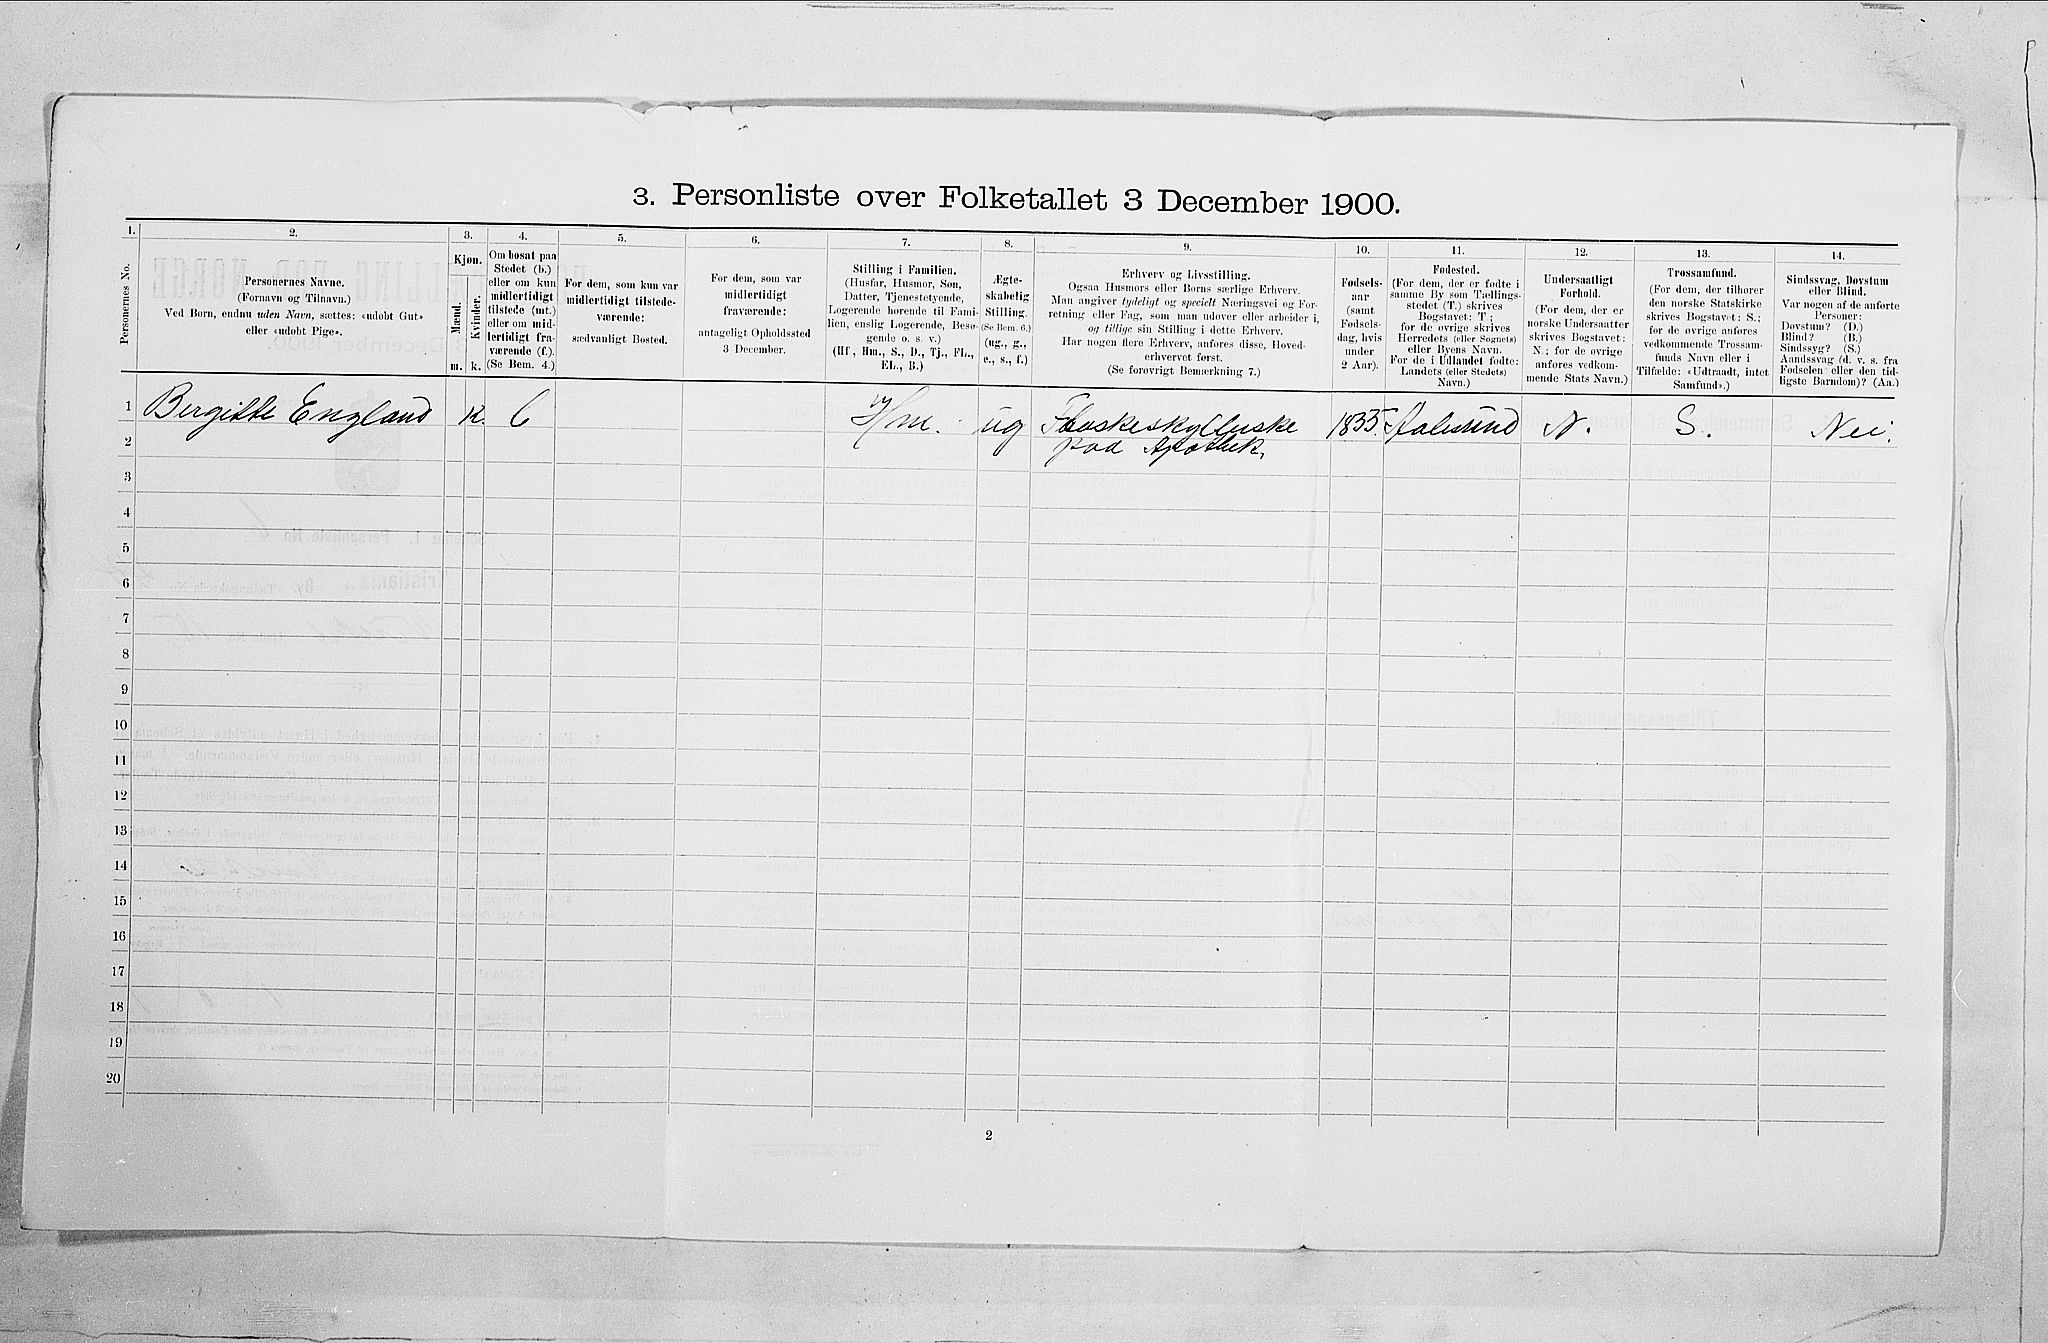 3. Personliste over Folketallet 3 December 1900.
1.
Personernes No.
2.
Personernes Navne.
(Fornavn og Tilnavn.)
Ved Børn, endnu uden Navn, sættes: «udøbt Gut»
eller «udøbt Pige».
3.
Kjøn.
Mænd.
Kvinder.
m. k.
4.
Om bosat paa
Stedet (b.)
eller om kun
midlertidigt
tilstede (mt.)
eller om mid-
lertidigt fra-
værende (f.).
(Se Bem. 4.)
5.
For dem, som kun var
midlertidigt tilstede-
værende:
sædvanligt Bosted.
6.
For dem, som var
midlertidigt
fraværende:
antageligt Opholdssted
3 December.
7.
Stilling i Familien.
(Husfar, Husmor, Søn,
Datter, Tjenestetyende,
Logerende hørende til Fami-
lien, enslig Logerende, Besø-
gende o. s. v.)
(Hf., Hm., S., D., Tj., FL.,
EL., B.)
8.
Ægte-
skabelig
Stilling.
(Se Bem. 6.)
(ug., g.,
e., s., f.)
9.
Erhverv og Livsstilling.
Ogsaa Husmors eller Børns særlige Erhverv.
Man angiver tydeligt og specielt Næringsvei og For-
retning eller Fag, som man udøver eller arbeider i,
og tillige sin Stilling i dette Erhverv.
Har nogen flere Erhverv, anføres disse, Hoved-
erhvervet først.
(Se forøvrigt Bemærkning 7.)
10.
Fødsels-
aar
(samt
Fødsels-
dag, hvis
under
2 Aar).
11.
Fødested.
(For dem, der er fødte i
samme By som Tællings-
stedet (T.) skrives
Bogstavet: T;
for de øvrige skrives
Herredets (eller Sognets)
eller Byens Navn.
For de i Udlandet fødte:
Landets (eller Stedets)
Navn.)
12.
Undersaatligt
Forhold.
(For dem, der er
norske Undersaatter
skrives Bogstavet:
N.; for de øvrige
anføres vedkom-
mende Stats Navn.)
13.
Trossamfund.
(For dem, der tilhører
den norske Statskirke
skrives Bogstavet: S.;
for de øvrige anføres
vedkommende Trossam-
funds Navn eller i
Tilfælde: «Udtraadt, intet
Samfund».)
14.
Sindssvag, Døvstum
eller Blind.
Var nogen af de anførte
Personer:
Døvstum? (D.)
Blind? (B.)
Sindssyg? (S.)
Aandssvag (d. v. s. fra
Fødselen eller den tid-
ligste Barndom)? (Aa.)
1 Bergitte England K. Hm. ug Flaskeskyllerske 1835 Aalesund N. S. Nei.
2 paa Apothek.
3
4
5
6
7
8
9
10
11
12
13
14
15
16
17
18
19
20
2